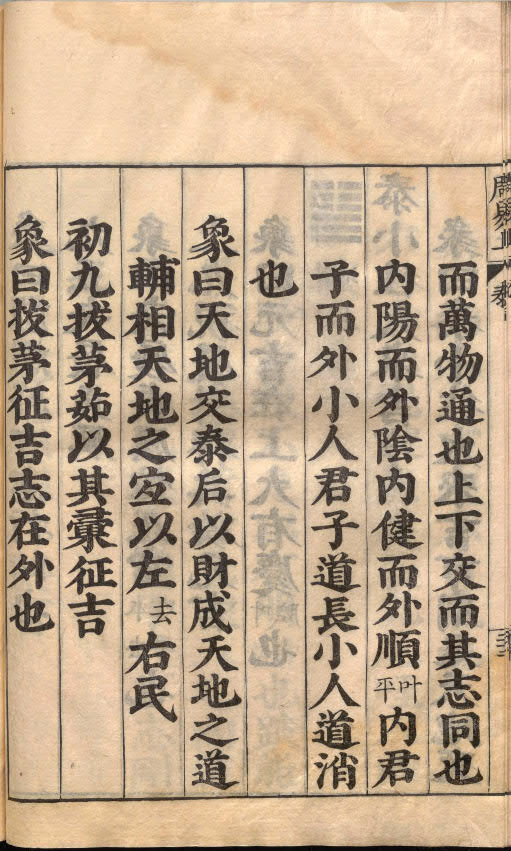 而萬物通也上下交而其志同也
内陽而外陰内健而外順叶平内君
子而外小人君子道長小人道消
也
象曰天地交泰后以財成天地之道
輔相天地之宜以左去右民
初九拔茅茹以其彙征吉
象曰拔茅征吉志在外也